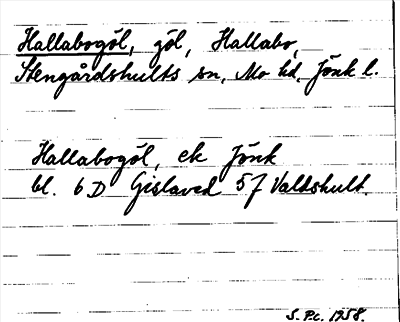 Hallabogöl, göl, Hallabo,
Stengårdshults sn, Mo hd, Jönk l.
Hallabogöl, ek Jönk
bl. 6 D Gislaved 5 f Valdshult.
S. Pc. 1958.